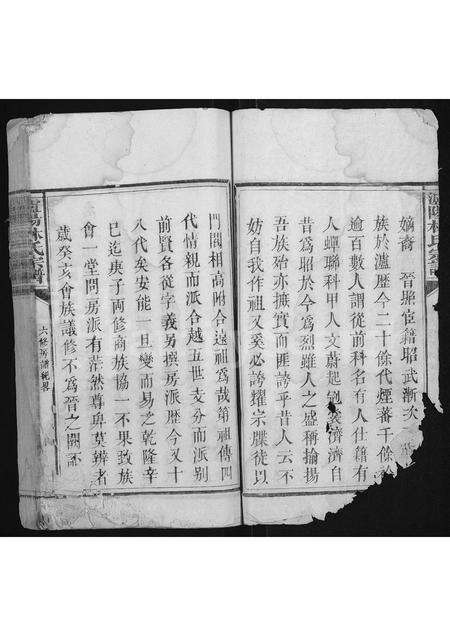 嫡裔 晉㬎宦籍昭武漸次
族於瀘歷今二十餘代煙蕃千餘
逾百數人謂從前科名有人仕籍有
人蟬聯科甲人文蔚起冠裳濟濟自
昔爲昭於今爲烈雖人之盛稱揄揚
吾族殆亦摭實而匪誇乎昔人云不
妨自我作祖又奚必誇耀宗牒徒以
門閥相高附合遠祖爲哉第祖傳四
代情親而派合越五世支分而派別
前賢各從字義另撰房派歷今又十
八代矣安能一旦變而易之乾隆辛
巳迄庚子兩修商族協一不果致族
會一堂問房派有茫然尊卑莫辨者
歲癸亥會族議修不爲晉之闕不
林氏宗譜
六修房譜規畧